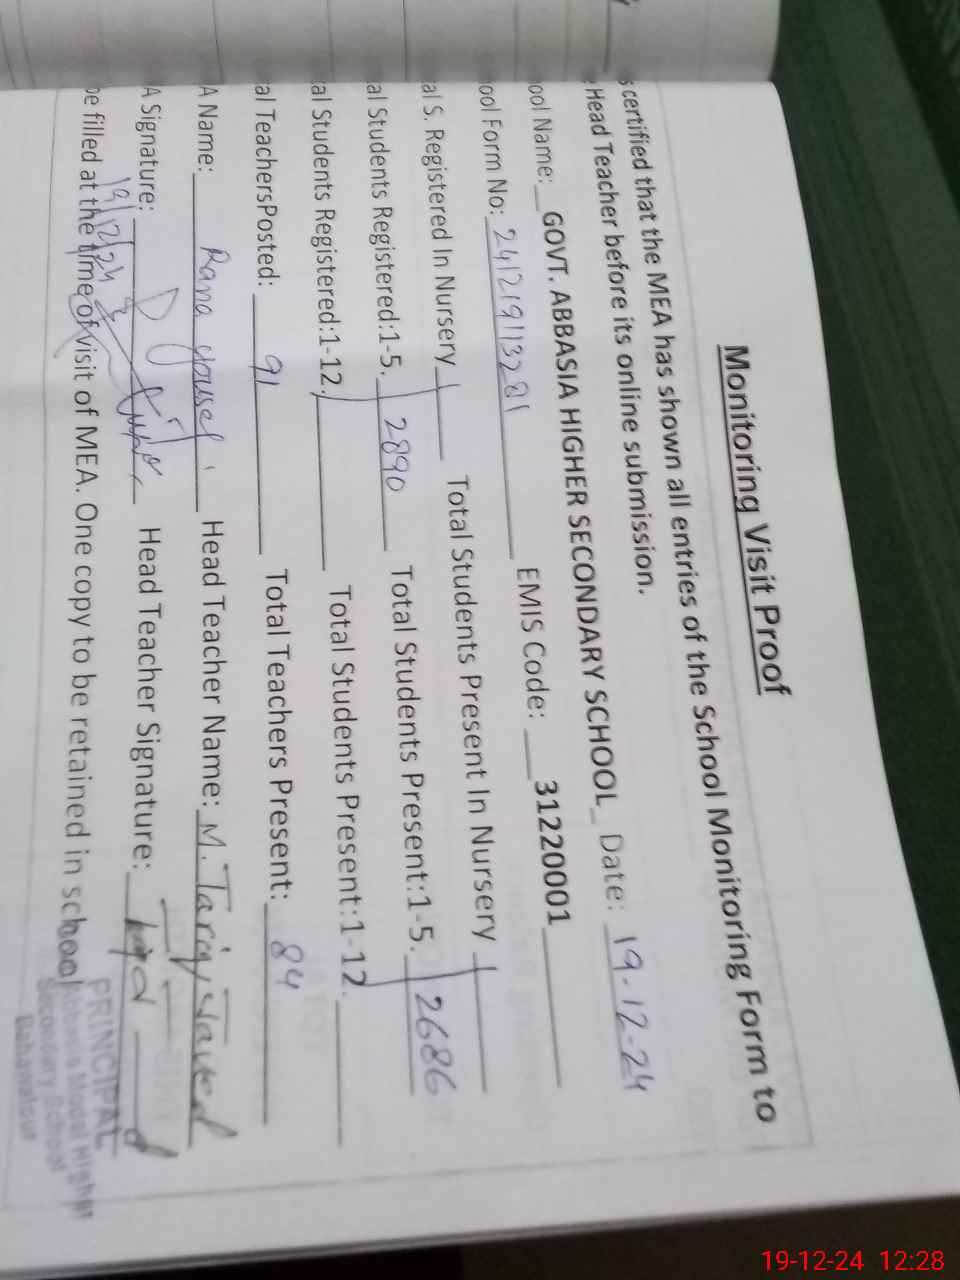 Monitoring Visit Proof
s certified that the MEA has shown all entries of the School Monitoring Form to
Head Teacher before its online submission.
ool Name:__GOVT. ABBASIA HIGHER SECONDARY SCHOOL_ Date: 19-12-24
ool Form No: 241219113281 EMIS Code: 31220001
al S. Registered In Nursery Total Students Present In Nursery
al Students Registered:1-5. 2890 Total Students Present:1-5. 2686
al Students Registered:1-12. Total Students Present:1-12.
al TeachersPosted: 91 Total Teachers Present: 84
A Name: Rana Yousef Head Teacher Name: M. Tariq Javed
A Signature: Head Teacher Signature:
19/12/24
be filled at the time of visit of MEA. One copy to be retained in school
PRINCIPAL
Abbasia Model Higher
Secondary School
Bahawalpur
19-12-24 12:28